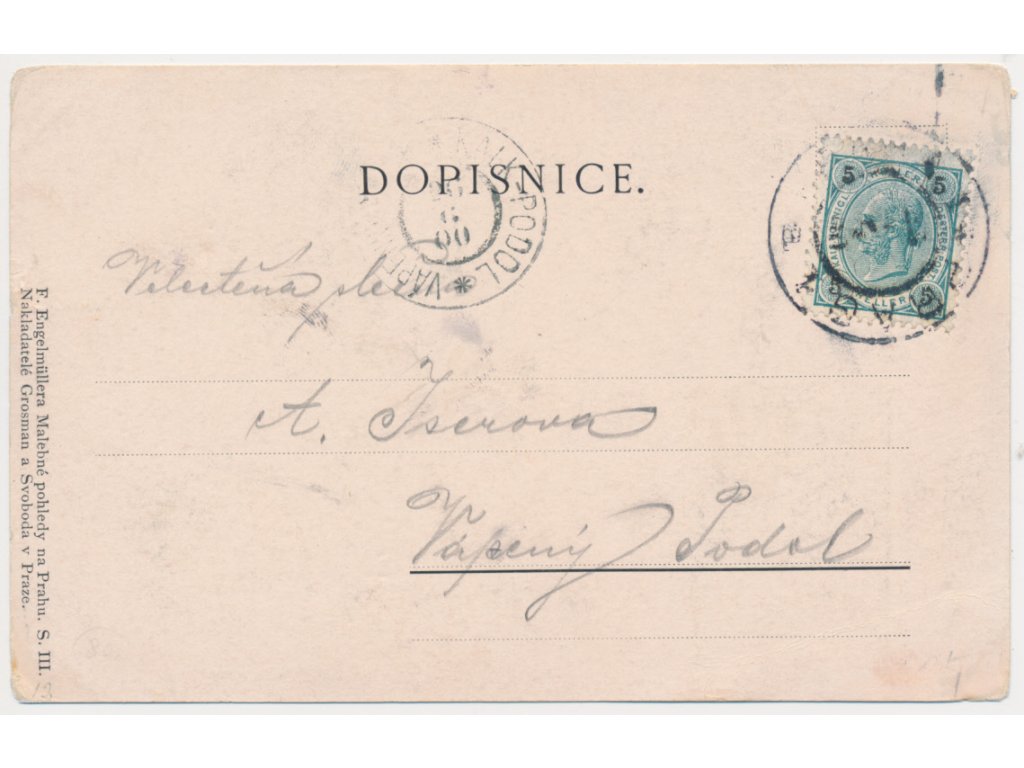 DOPISNICE.
PODOL * VÁP
6
00
5 5
5 5
Velectěná slečna
A. Iserova
Vápený Podol
F. Engelmüllera Malebné pohledy na Prahu. S. III.
Nakladatelé Grosman a Svoboda v Praze.